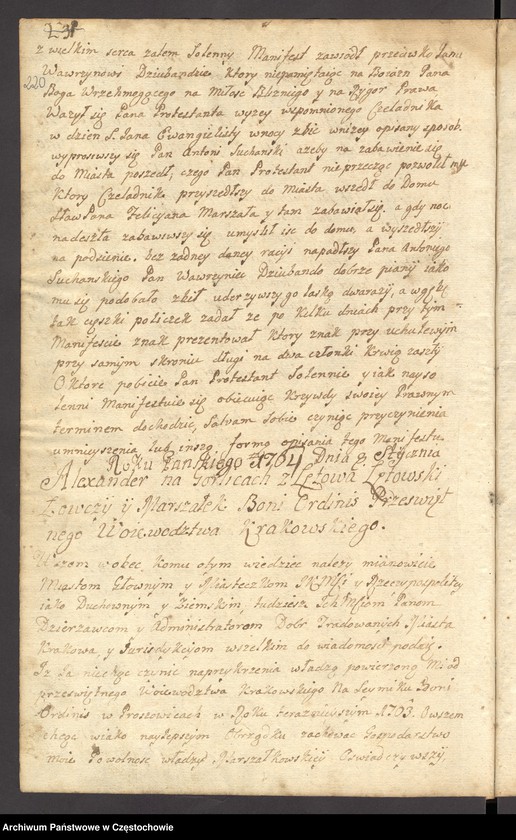 z wielkim serca żalem Solenny Manifest zawiódł przeciwko Janu
220
Wawrzynowi Dziubandzie ktory niepamiętaiąc na Boiaźn Pana
Boga Wrzekmogącego na Miłość Blizniego y na Rygor Prawa
Ważył się Pana Protestanta wyzey wspomnionego Czeladnika
w dzien S. Jana Ewangielisty wnocy zbic wnizey opisany sposob.
wyprosiwszy się Pan Antoni Suchanski azeby na zabawienie się
do Miasta poszedł, czego Pan Protestant nie przecząc pozwolił mu
Ktory Czeladnik przyszedłszy do Miasta wszedł do Domu
Sław Pana Felicyana Marszała y tam zabawiał się a gdy noc
nadeszła zabawiwszy się umyslił isc do domu, a wyszedłszy
na podsienie bez zadney daney racyi napadłszy Pana Antoniego
Suchanskiego Pan Wawrzyniec Dziubando dobrze piany iako
mu się podobało zbił uderzywszy go laską dwa razy, a w gębę
tak cięszki policzek zadał ze po kilku dniach przy tym
Manifescie znak prezentował ktory znak przy uchu lewym
przy samym skroniu długi na dwa członki krwią zaszły
O ktore pobicie Pan Protestant Solennie y iak nayso
lenni Manifestuie się obiecuiąc Krzywdy swoiey Prawnym
terminem dochodzić, Salvam sobie czyniąc przyczynienia
umnieyszenia lub inszą formą opisania tego Manifestu.
Roku Pańskiego 1764 Dnia 8 Stycznia
Alexander na Gorlicach z Łętowa Łętowski
Łowczy y Marszałek Boni Ordinis Przeswięt
nego Woiewodztwa Krakowskiego.
Wszem wobec komu otym wiedziec nalezy mianowicie
Miastom Głownym y Miasteczkom JKMsci y Rzeczypospolitey
iako Duchownym y Ziemskim, tudziesz Ich Mciom Panom
Dzierzawcom y Administratorom Dobr Tradowanych Miasta
Krakowa y Jurisdykcyom wszelkim do wiadomosci podaię.
Iz Ja niechcąc czynic naprzykrzenia władzą powierzoną Mi od
przeswiętnego Woiewodztwa Krakowskiego Na Seymiku Boni
Ordinis w Proszowicach w Roku teraznieyszym 1763. Owszem
chcąc wiako naylepszym Porządku zachować Gospodarstwo
moie Powolnosc władzy Marszałkowskiey Oswiadczywszy
Archiwum Państwowe w Częstochowie